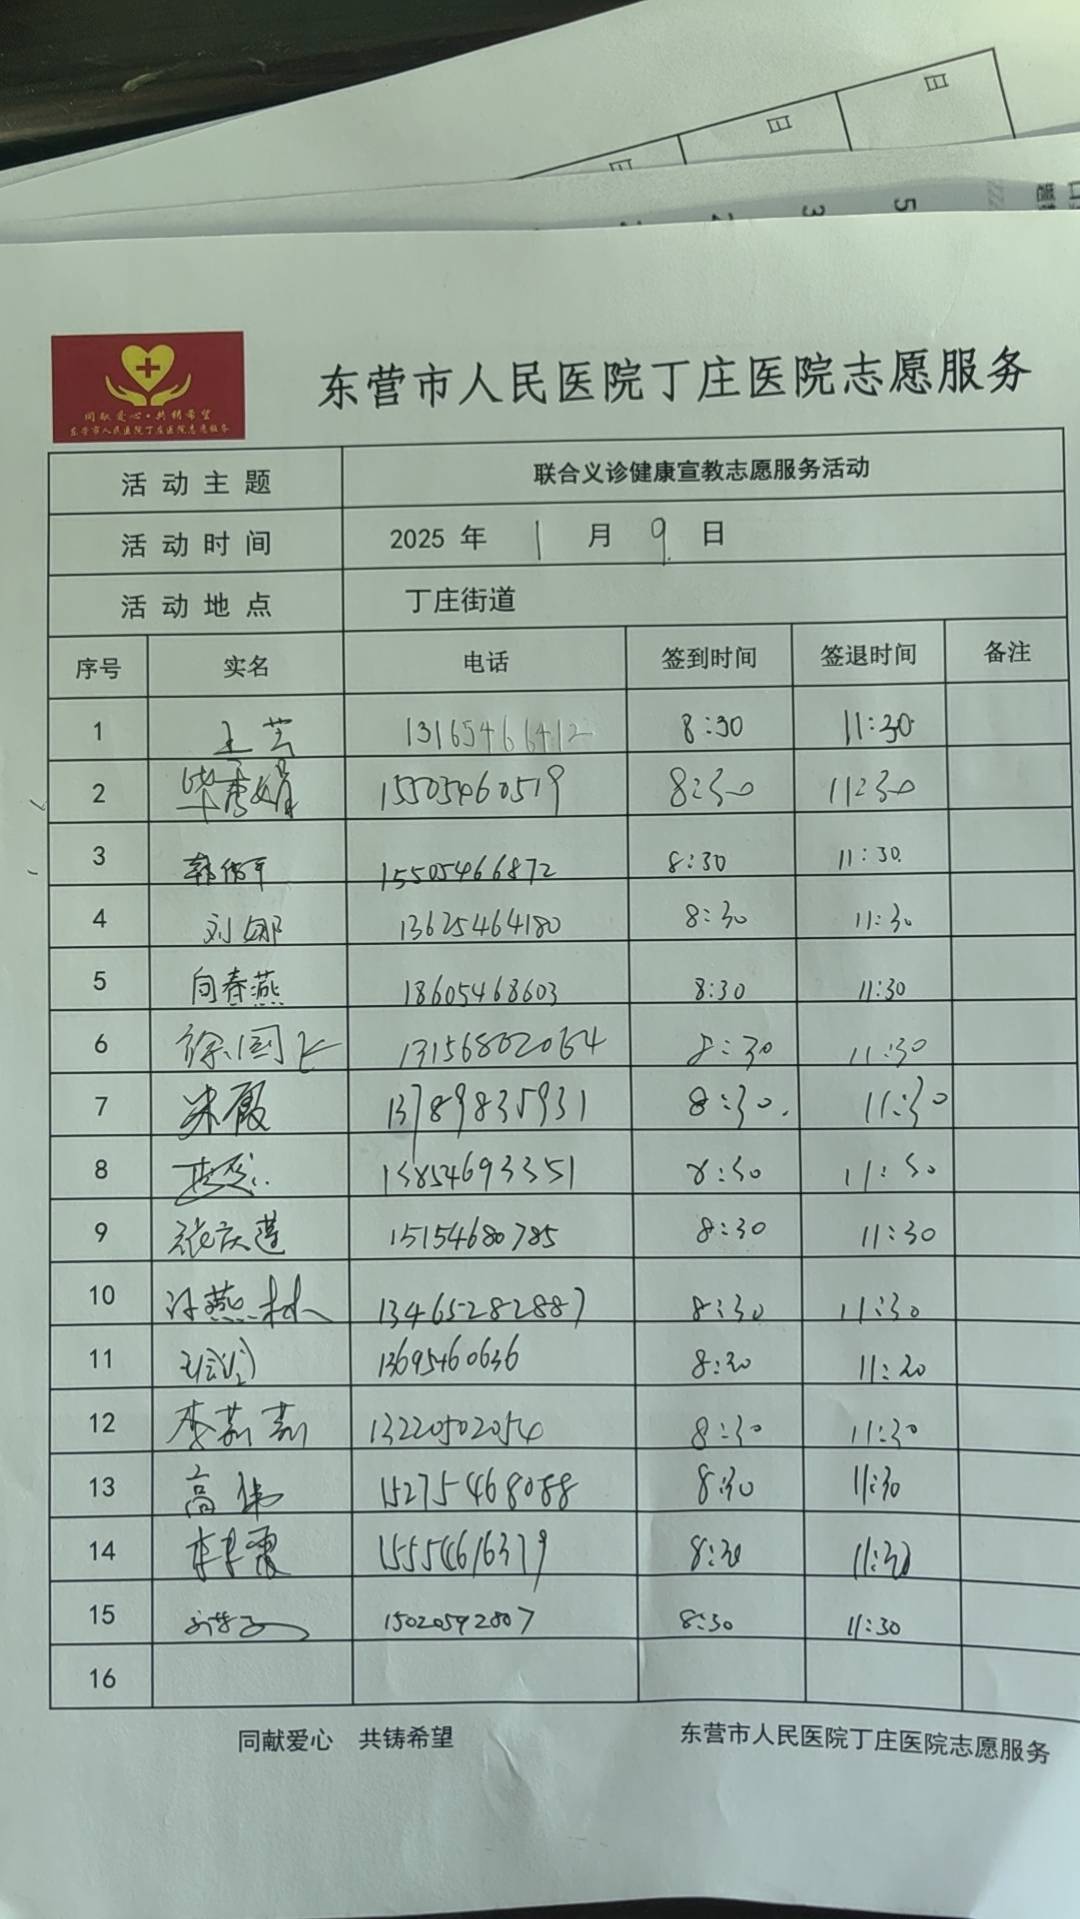 日
日
日
2 3 5
同献爱心·共铸希望
东营市人民医院丁庄医院志愿服务
东营市人民医院丁庄医院志愿服务
活动主题 联合义诊健康宣教志愿服务活动
活动时间 2025 年 1 月 9 日
活动地点 丁庄街道
序号 实名 电话 签到时间 签退时间 备注
1 王芸 13165466412 8:30 11:30
2 毕秀娟 15505460519 8:30 11:30
3 韩 15505466872 8:30 11:30
4 刘娜 13625464180 8:30 11:30
5 向春燕 18605468603 8:30 11:30
6 徐国飞 13156802064 8:30 11:30
7 朱霞 13789835931 8:30 11:30
8 13854693351 8:30 11:30
9 张庆莲 15154680785 8:30 11:30
10 燕林 13465282887 8:30 11:30
11 13695460636 8:30 11:30
12 李莉莉 13220502054 8:30 11:30
13 高伟 15275468088 8:30 11:30
14 15554616379 8:30 11:30
15 15020592807 8:30 11:30
16
同献爱心 共铸希望 东营市人民医院丁庄医院志愿服务